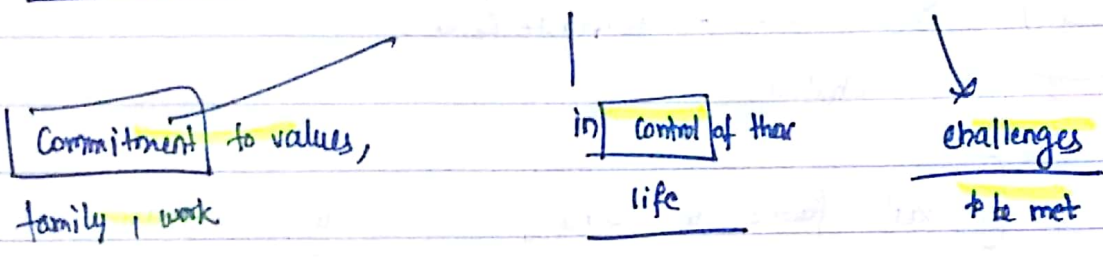 Commitment to values,
family, work
in control of thar
life
challenges
to be met